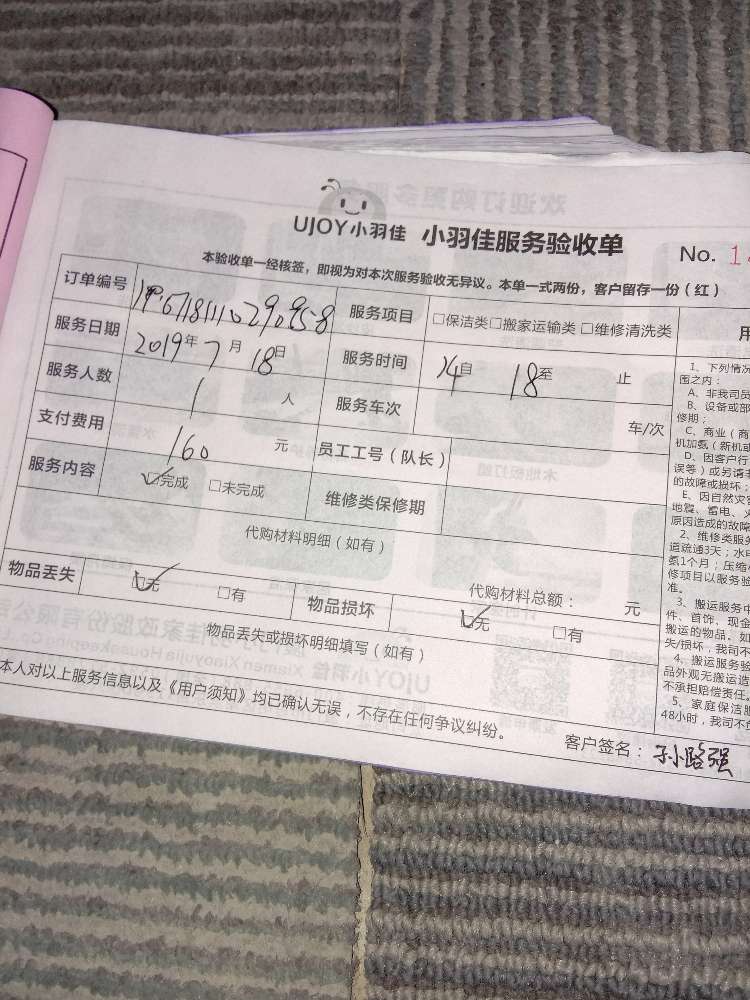 UJOY小羽佳 小羽佳服务验收单 No.
本验收单一经核签，即视为对本次服务验收无异议。本单一式两份，客户留存一份（红）
订单编号 服务项目 □保洁类□搬家运输类□维修清洗类
服务日期 2019年7月18日 服务时间 14自 18至 止
服务人数 1 人 服务车次 车/次
支付费用 160 元 员工工号（队长）
服务内容 ☑完成 □未完成 维修类保修期
代购材料明细（如有）
代购材料总额： 元
物品丢失 ☑无 □有 物品损坏 ☑无 □有
物品丢失或损坏明细填写（如有）
本人对以上服务信息以及《用户须知》均已确认无误，不存在任何争议纠纷。
客户签名：孙路强
用
1、下列情况
围之内：
A、非我司员
B、设备或部
修期；
C、商业（商
机加氨（新机或
D、因客户行
误等）或另请
的故障或损坏；
E、因自然灾害
地震、雷电、火
原因造成的故障
2、维修类服务
道疏通3天；水电
氨1个月；压缩
修项目以服务验
准。
3、搬运服务中
件、首饰、现金
搬运的物品，如
失/损坏，我司不
4、搬运服务验
品外观无搬运造
不承担赔偿责任。
5、家庭保洁服
48小时，我司不负